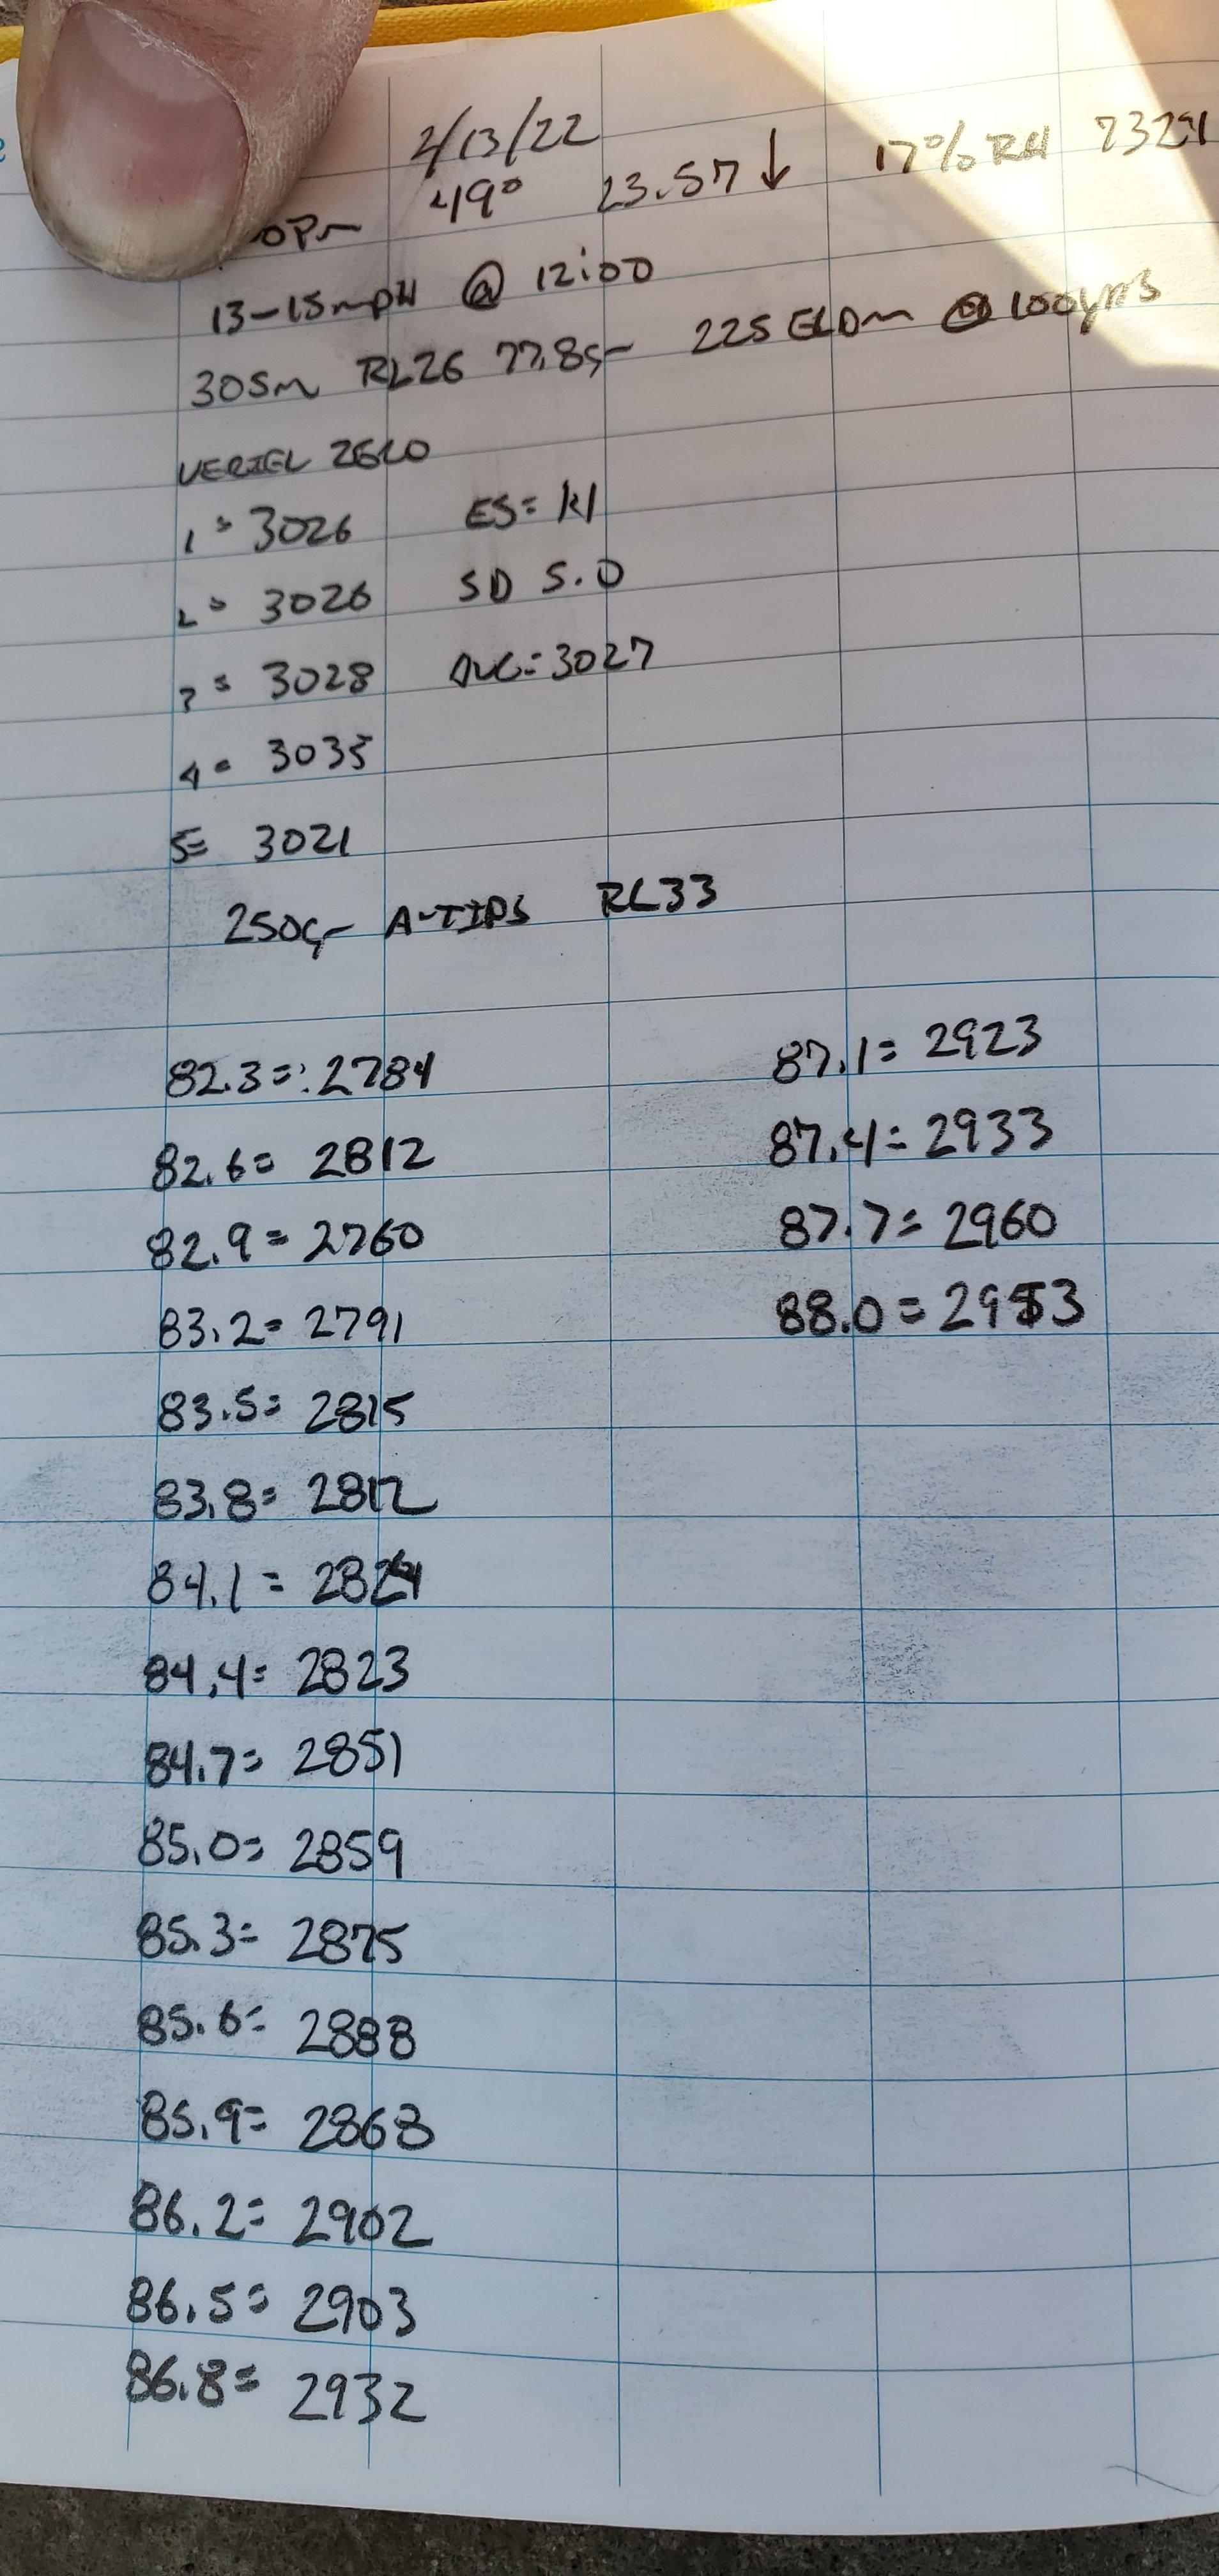 2/13/22
0Pm 49° 23.57↓ 17% RH 7329
13-15mpH @ 12:00
30Sm RL26 77.8gr 225 ELDm @ 100yrds
VERIFY ZERO
1 = 3026 ES= 14
2 = 3026 SD 5.0
3 = 3028 AVG=3027
4 = 3035
5= 3021
250gr A-TIPS RL33
82.3=:2784
82.6= 2812
82.9= 2760
83.2= 2791
83.5= 2815
83.8= 2812
84.1= 2824
84.4= 2823
84.7= 2851
85.0= 2859
85.3= 2875
85.6= 2888
85.9= 2868
86.2= 2902
86.5= 2903
86.8= 2932
87.1= 2923
87.4= 2933
87.7= 2960
88.0= 2953